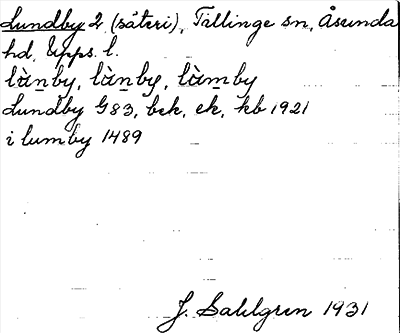 Lundby 2 (säteri), Tillinge sn, Åsunda
hd, Upps. l.
lùnby, lùnby, lùmby
Lundby G83, bek, ek, kb 1921
i lumby 1489
J. Sahlgren 1931